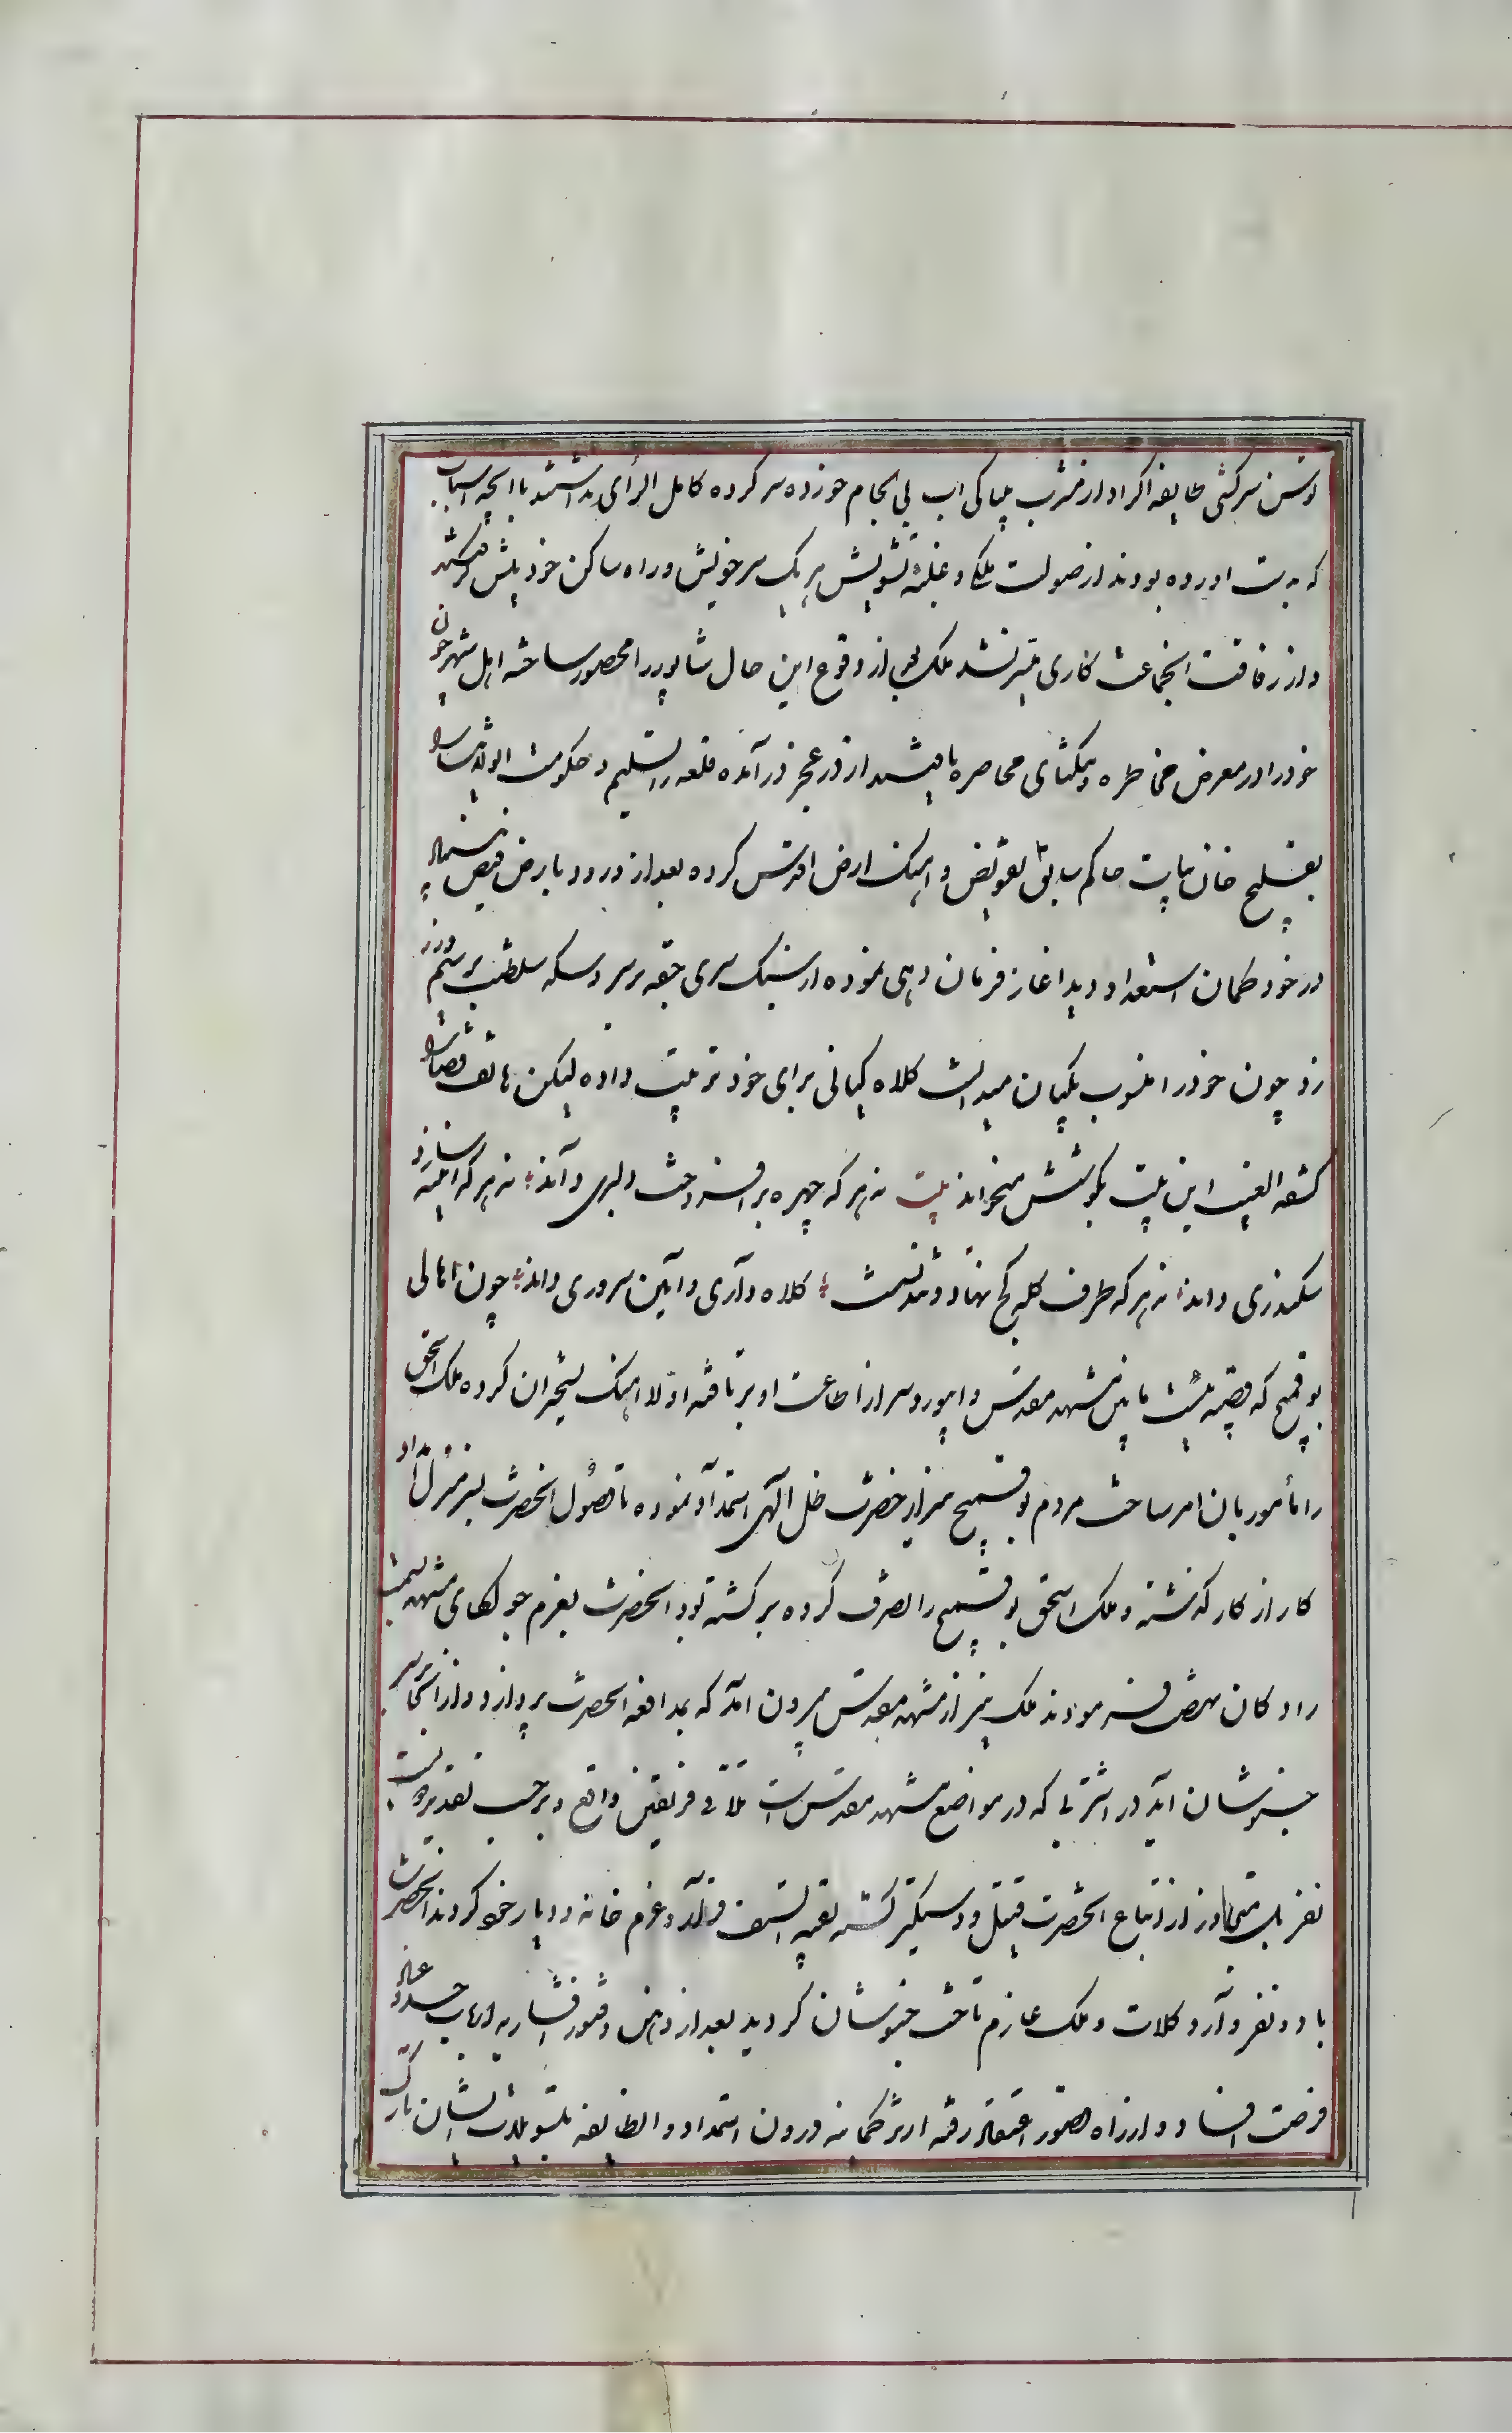 توسن سرکشی طایفه اکراد از مشرب بیباکی اب بی لجام خورده سر کرده کامل الرأی نداشتند با انچه اسباب
که بدست اورده بودند از صولت ملکی و غلبه تشویش هر یک سر خویش و راه مساکن خود پیش گرفتند
و از رفاقت انجماعت کاری میسر نشد ملک بعد از وقوع این حال نیشابور را محصور ساخته اهل شهر چون
خود را در معرض مخاطره و تنکنای محاصره یافتند از در عجز در آمده قلعه را تسلیم و حکومت انولایت را
بفتحعلی خان بیات حاکم سابق تفویض و اهنک ارض اقدس کرده بعد از ورود بارض فیض نشان
در خود کمان استعداد دید اغاز فرمان دهی نموده از سبک سری جقه بر سر و سکه سلطنت بر سیم و زر
زد چون خود را منسوب بکیان میدانست کلاه کیانی برای خود ترتیب داده لیکن هاتف قضا
کشف الغیب این بیت بکوشش میخواند بیت نه هر که چهره بر افروخت دلبری داند نه هر که اینه سازد
سکندری داند نه هر که طرف کله کج نهاد و تند نشست کلاه داری و ایین سروری داند چون اهالی
بوقمچ که قصبه ایست مابین مشهد مقدس و ابیورد سر از اطاعت او بر تافته اولا اهنک تسخیر ان کرده ملک اسحق
را مأمور بان امر ساخت مردم بوقمچ نیز از حضرت ظل الهی استمداد نموده تا وصول انحضرت بسر منزل امداد
کار از کار گذشته و ملک اسحق بوقمچ را تصرف کرده بر کشته بود انحضرت بعزم جولکهای مشهد بسمت
رادکان نهضت فرمودند ملک نیز از مشهد مقدس بیرون امد که بمدافعه انحضرت پردازد و از انجا بر سر
خبوشان آید در اثنای که در مواضع مشهد مقدس است تلاقی فریقین واقع و بر حسب تقدیر
نفر یک متجاوز از اتباع انحضرت قتیل و دستگیر کشته بقیه السیف فرار و عزم خانه و دیار خود کردند انحضرت
با دو نفر وارد کلات و ملک عازم تاخت خبوشان کردید بعد از وهن و فتور افشاریه ارباب حسد و عناد
فرصت افساد و از راه قصور اعتقاد رفته از ترکمانیه درون استمداد و انطایفه بتسویلات ایشان تارک